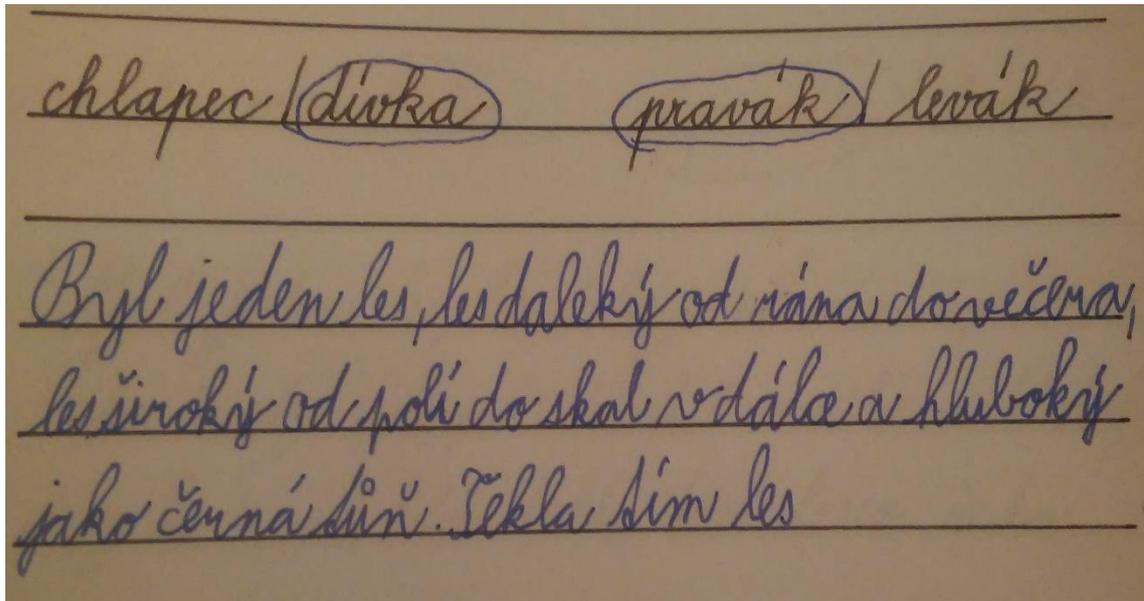 chlapec / dívka pravák / levák
Byl jeden les, les daleký od rána do večera,
les široký od polí do skal v dálce a hluboký
jako černá tůň. Tekla tím les